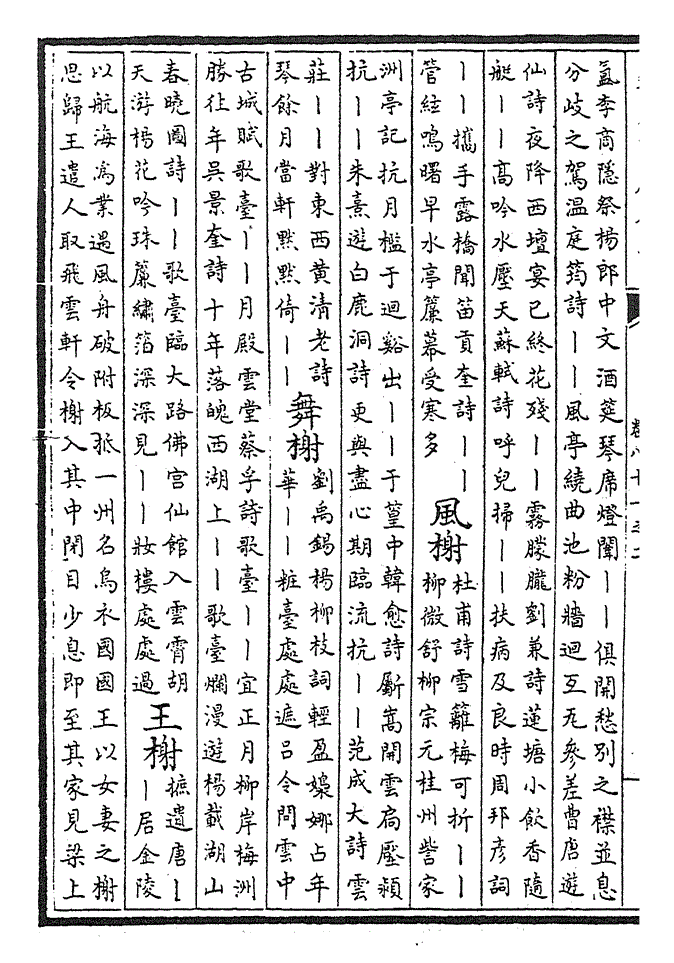 氳李商隱祭楊郎中文酒筵琴席燈闈丨丨俱開愁別之襟並息
分岐之駕溫庭筠詩丨丨風亭繞曲池粉牆迴互瓦參差曹唐遊
仙詩夜降西壇宴已終花殘丨丨霧朦朧劉兼詩蓮塘小飲香隨
艇丨丨高吟水壓天蘇軾詩呼兒掃丨丨扶病及良時周邦彥詞
丨丨攜手露橋聞笛貢奎詩丨丨
管絃鳴曙早水亭簾幕受寒多
風榭
杜甫詩雪籬梅可折丨丨
柳微舒柳宗元桂州訾家
洲亭記抗月檻于迴谿出丨丨于篁中韓愈詩斸嵩開雲扃壓潁
抗丨丨朱熹遊白鹿洞詩更與盡心期臨流抗丨丨范成大詩雲
莊丨丨對東西黃清老詩
琴餘月當軒默默倚丨丨
舞榭
劉禹錫楊柳枝詞輕盈嫋娜占年
華丨丨粧臺處處遮呂令問雲中
古城賦歌臺丨丨月殿雲堂蔡孚詩歌臺丨丨宜正月柳岸梅洲
勝往年吳景奎詩十年落魄西湖上丨丨歌臺爛漫遊楊載湖山
春曉圖詩丨丨歌臺臨大路佛宮仙館入雲霄胡
天游楊花吟珠簾繡箔深深見丨丨妝樓處處過
王榭
摭遺唐丨
丨居金陵
以航海為業遇風舟破附板抵一州名烏衣國國王以女妻之榭
思歸王遣人取飛雲軒令榭入其中閉目少息即至其家見梁上